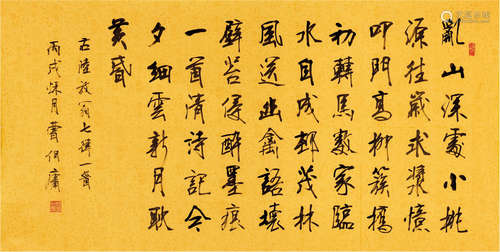 亂山深處小桃
源往歲求漿憶
叩門高柳簇橋
初轉馬數家臨
水自成邨茂林
風送幽禽語壞
壁苔侵醉墨痕
一首清詩記今
夕細雲新月耿
黃昏
右陸放翁七律一首
丙戌秋月蕭